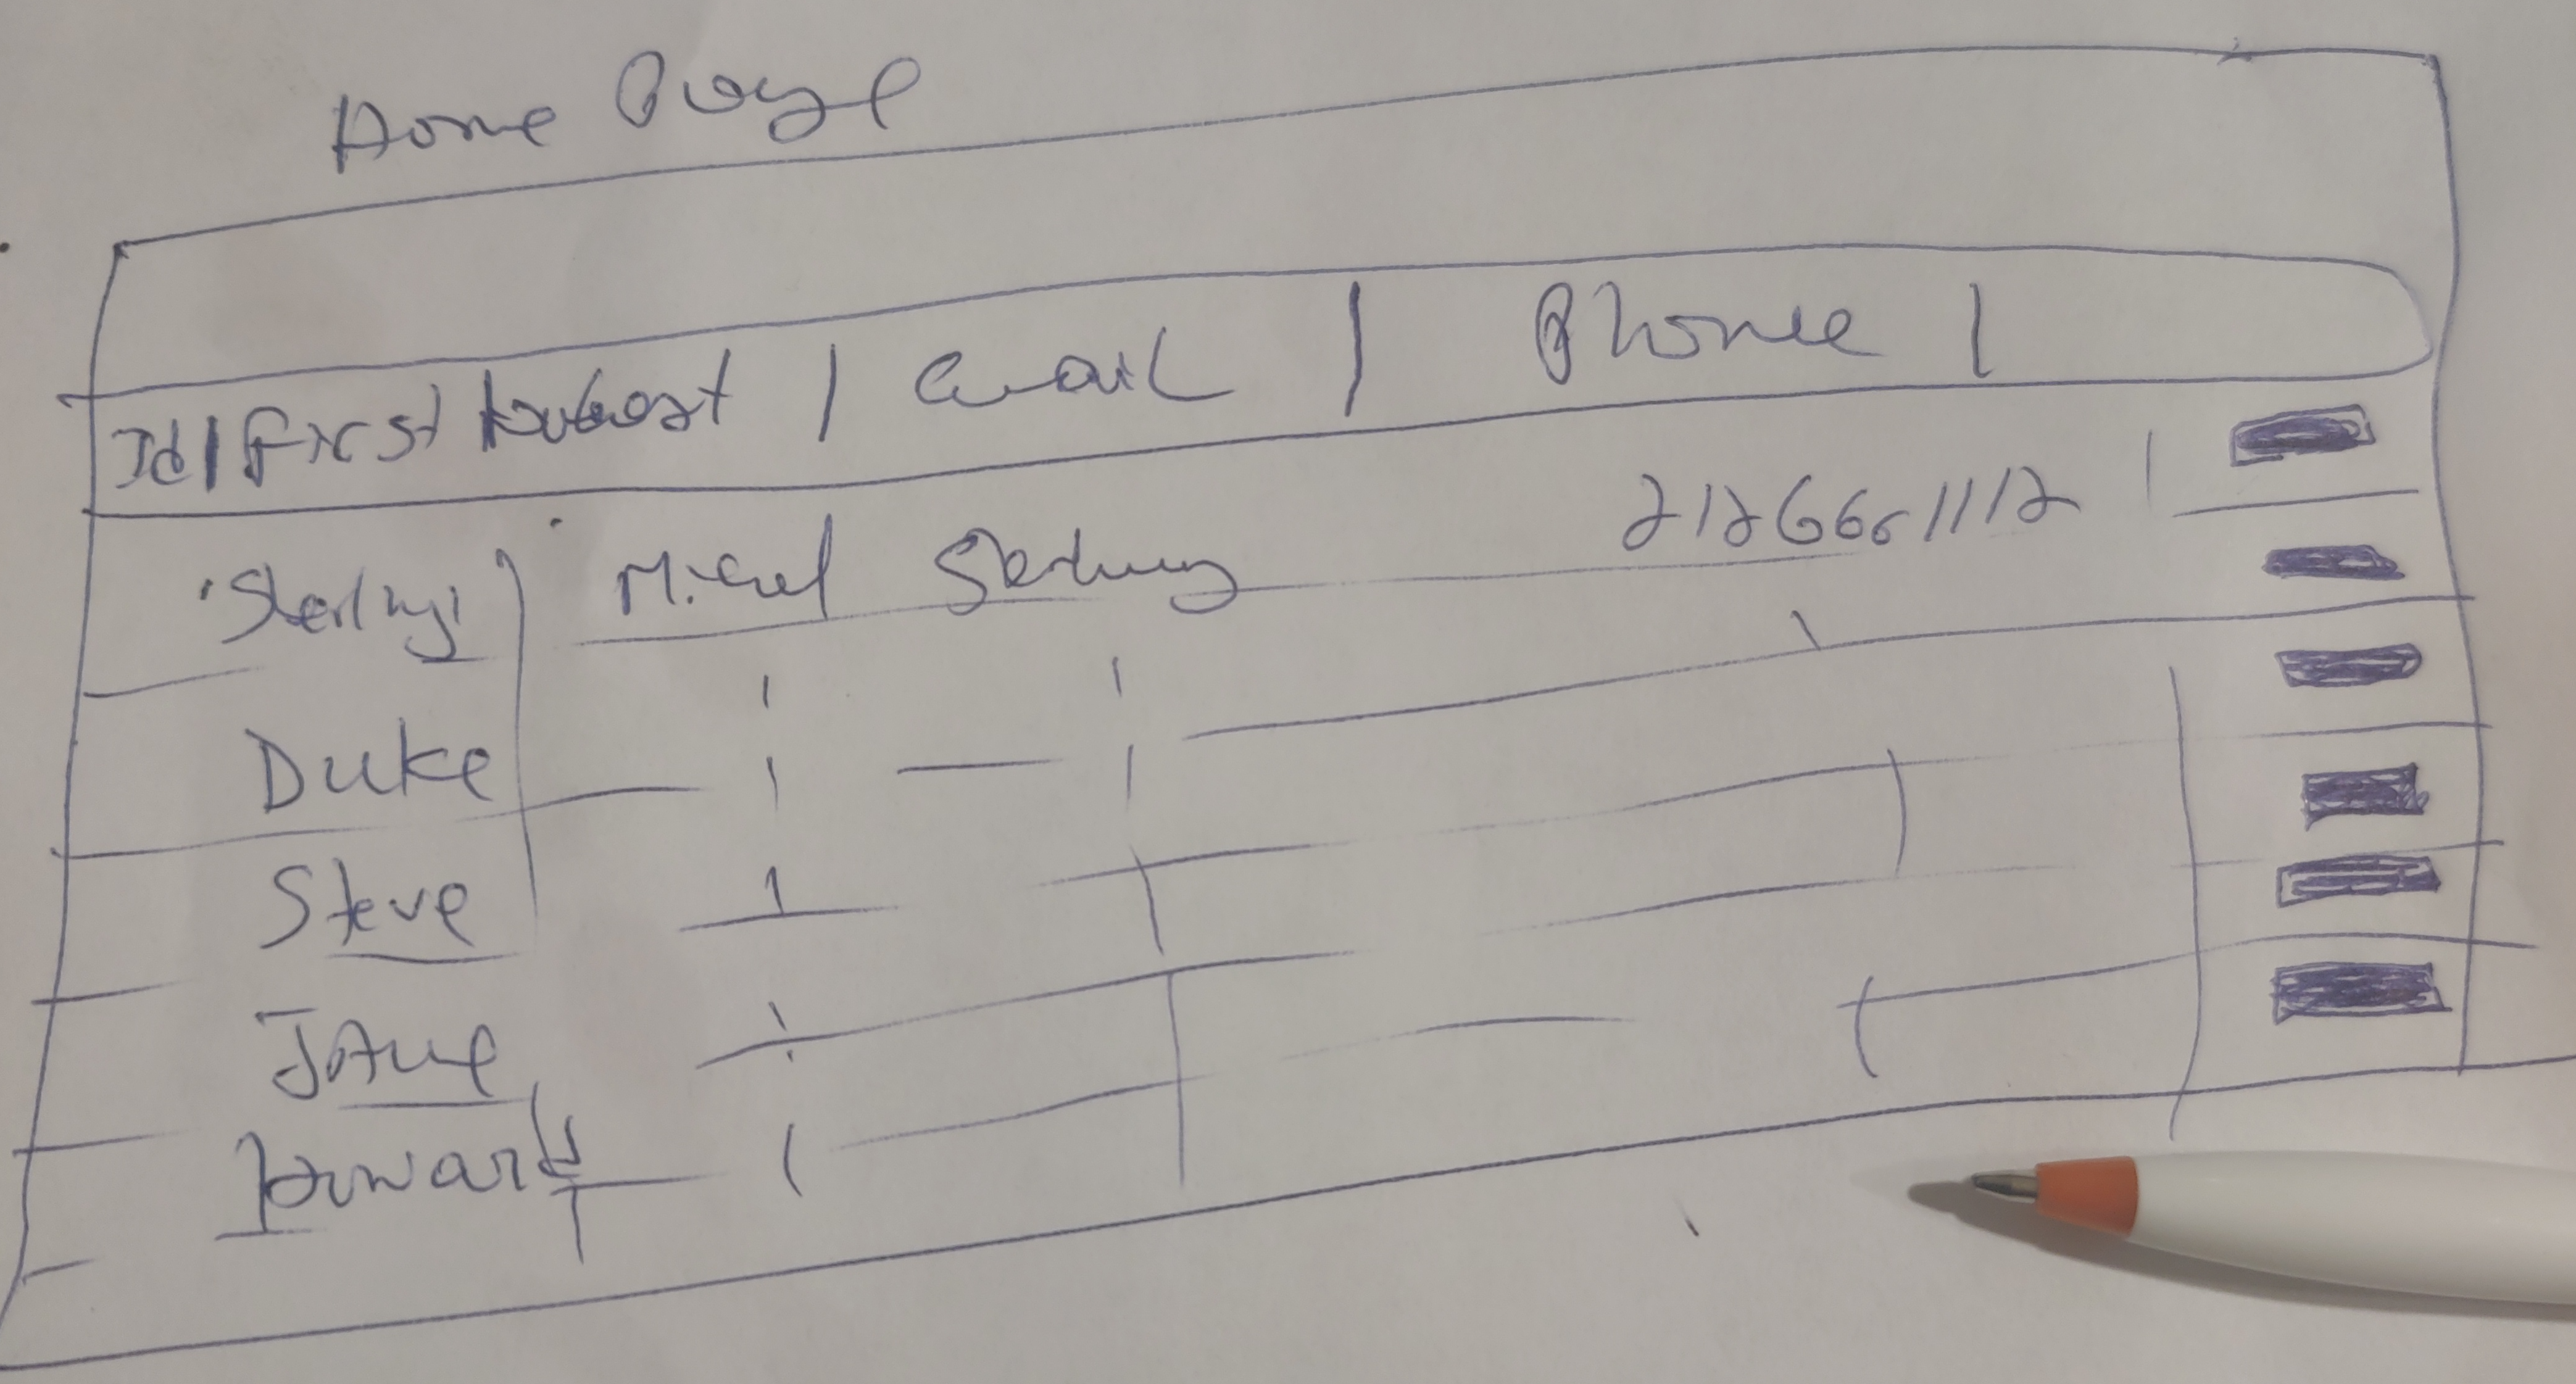 Home Page
Id | First | Last | email | Phone |
Sterling Michel Sterling 2126661112
Duke
Steve
Jane
Howard